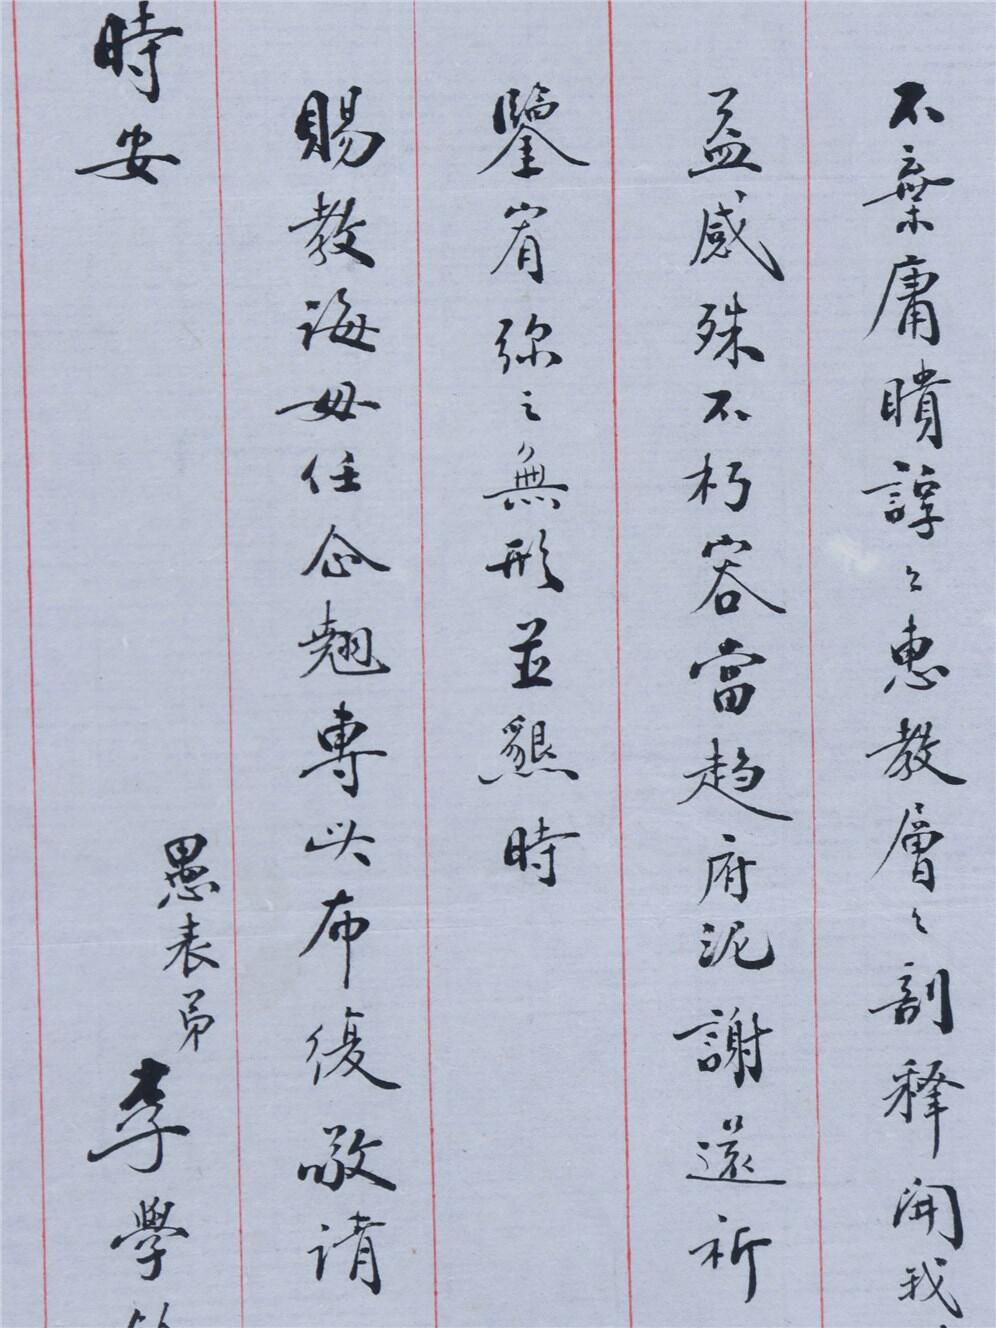 不棄庸瞶諄〻惠教層〻剖释開我
益感殊不朽容當趋府泥謝還祈
鑒宥弥之無形並懇時
賜教誨毋任企翹專此布復敬请
時安
愚表弟李學